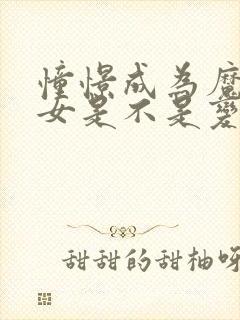 憧憬成為魔
女是不是變
甜甜的甜柚呀